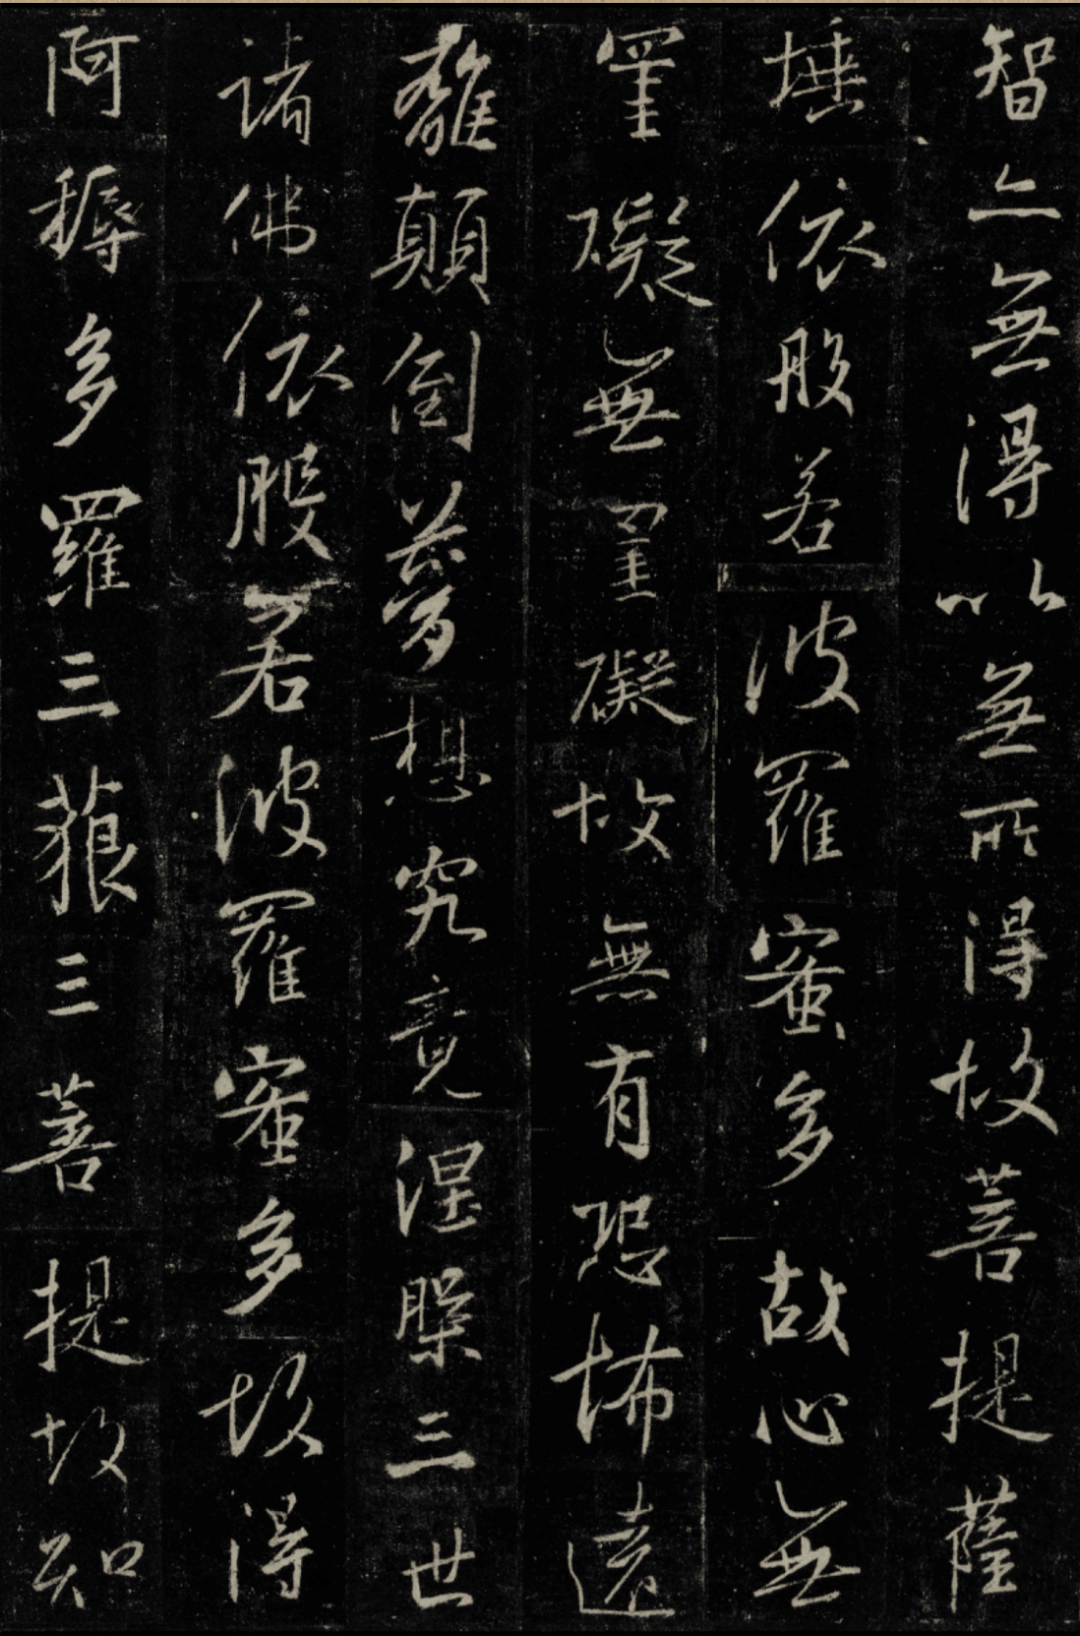 智亡無得以無所得故菩提薩
埵依般若波羅蜜多故心無
罣礙無罣礙故無有恐怖遠
離顛倒夢想究竟涅槃三世
諸佛依般若波羅蜜多故得
阿耨多羅三藐三菩提故知